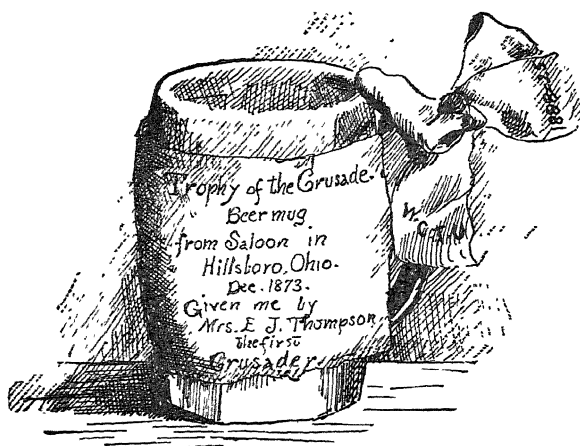 Trophy of the Crusade.
Beer mug
from Saloon in
Hillsboro, Ohio.
Dec. 1873.
Given me by
Mrs. E J. Thompson
the first
Crusader
W.C.T.U.